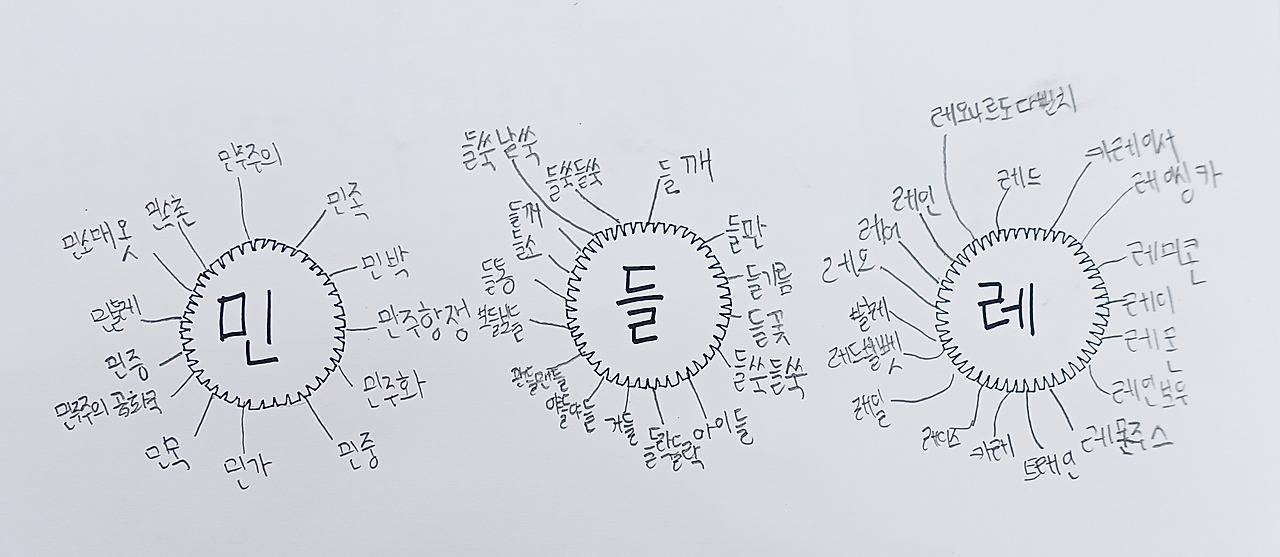 민
민주주의
민족
민박
민주항쟁
민주화
민중
민가
민주주의 공화국
민중
민들레
민소매 옷
들
들쑥날쑥
들쑥들쑥
들깨
들판
들기름
들꽃
들쑥들쑥
아이들
들락들락
들소
들통
레
레오나르도 다빈치
카레이서
레이싱 카
레미콘
레디
레몬
레인보우
레몬주스
트레인
카레
레이즈
레드벨벳
발레
레오
레인
레드